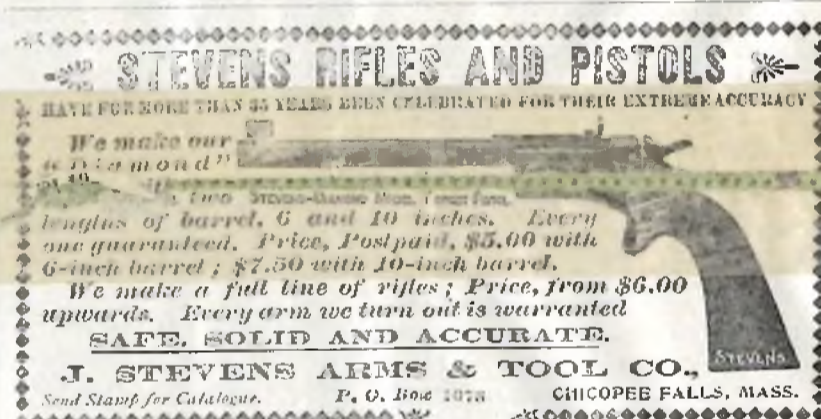 STEVENS RIFLES AND PISTOLS
HAVE FOR MORE THAN 35 YEARS BEEN CELEBRATED FOR THEIR EXTREME ACCURACY
We make our
"Diamond"
two
lengths of barrel, 6 and 10 inches. Every
one guaranteed. Price, Postpaid, $5.00 with
6-inch barrel; $7.50 with 10-inch barrel.
We make a full line of rifles; Price, from $6.00
upwards. Every arm we turn out is warranted
SAFE, SOLID AND ACCURATE.
J. STEVENS ARMS & TOOL CO.,
STEVENS
Send Stamp for Catalogue. P. O. Box CHICOPEE FALLS, MASS.